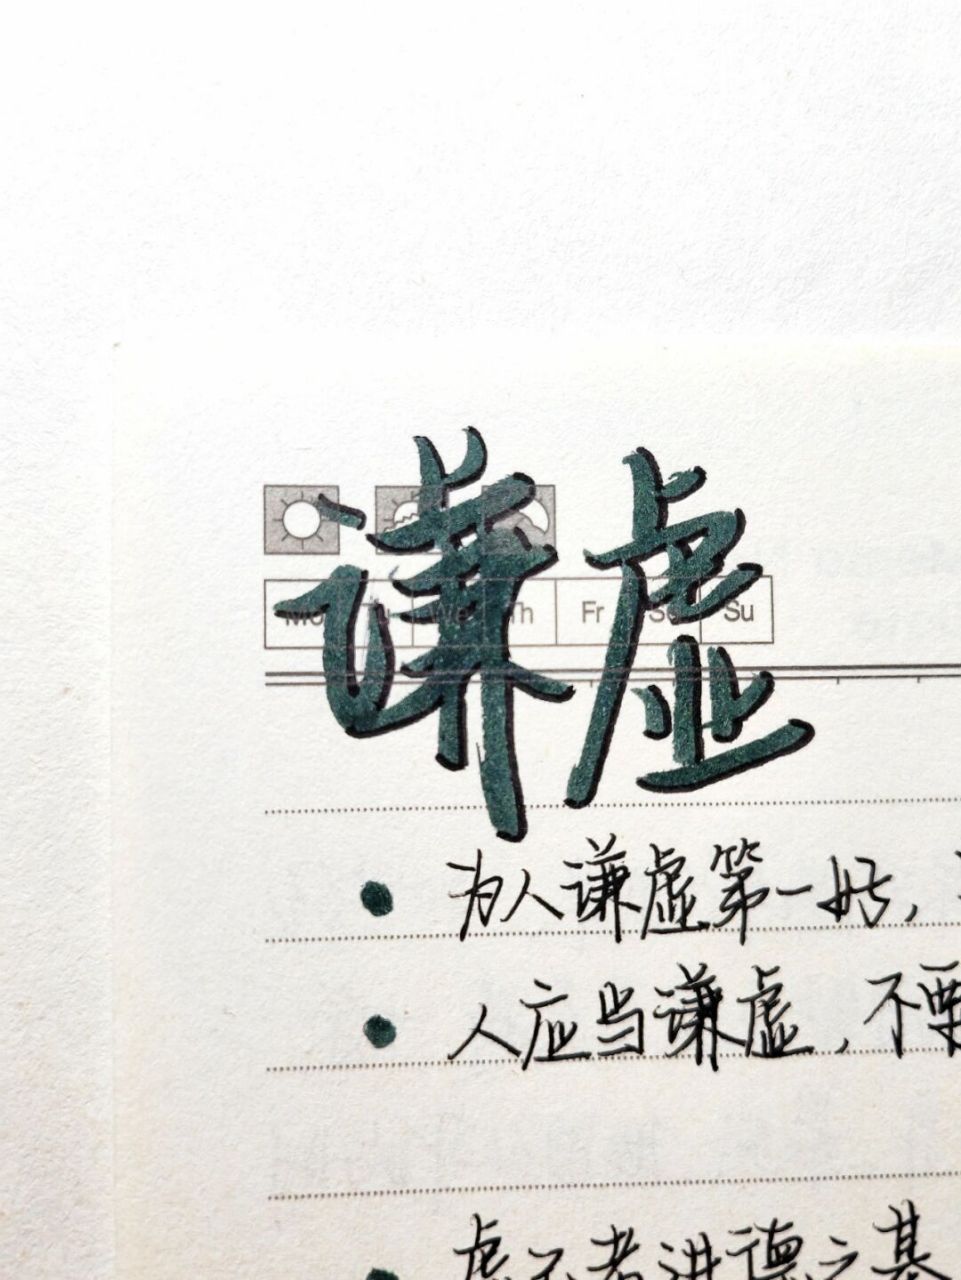 谦虚
Mo Tu We Th Fr Sa Su
为人谦虚第一好，
人应当谦虚，不要
虚不者进德之基